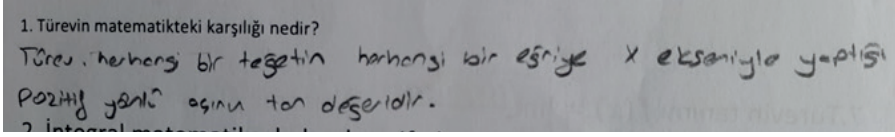 1. Türevin matematikteki karşılığı nedir?
Türev, herhangi bir teğetin herhangi bir eğriye x ekseniyle yaptığı
pozitif yönlü açının tan değeridir.